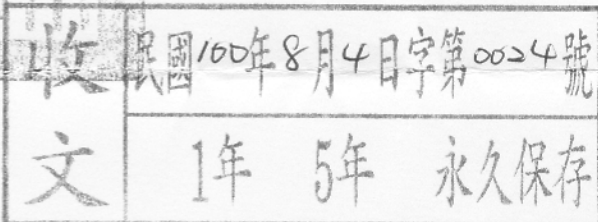 收文
民國100年8月4日字第0024號
1年 5年 永久保存